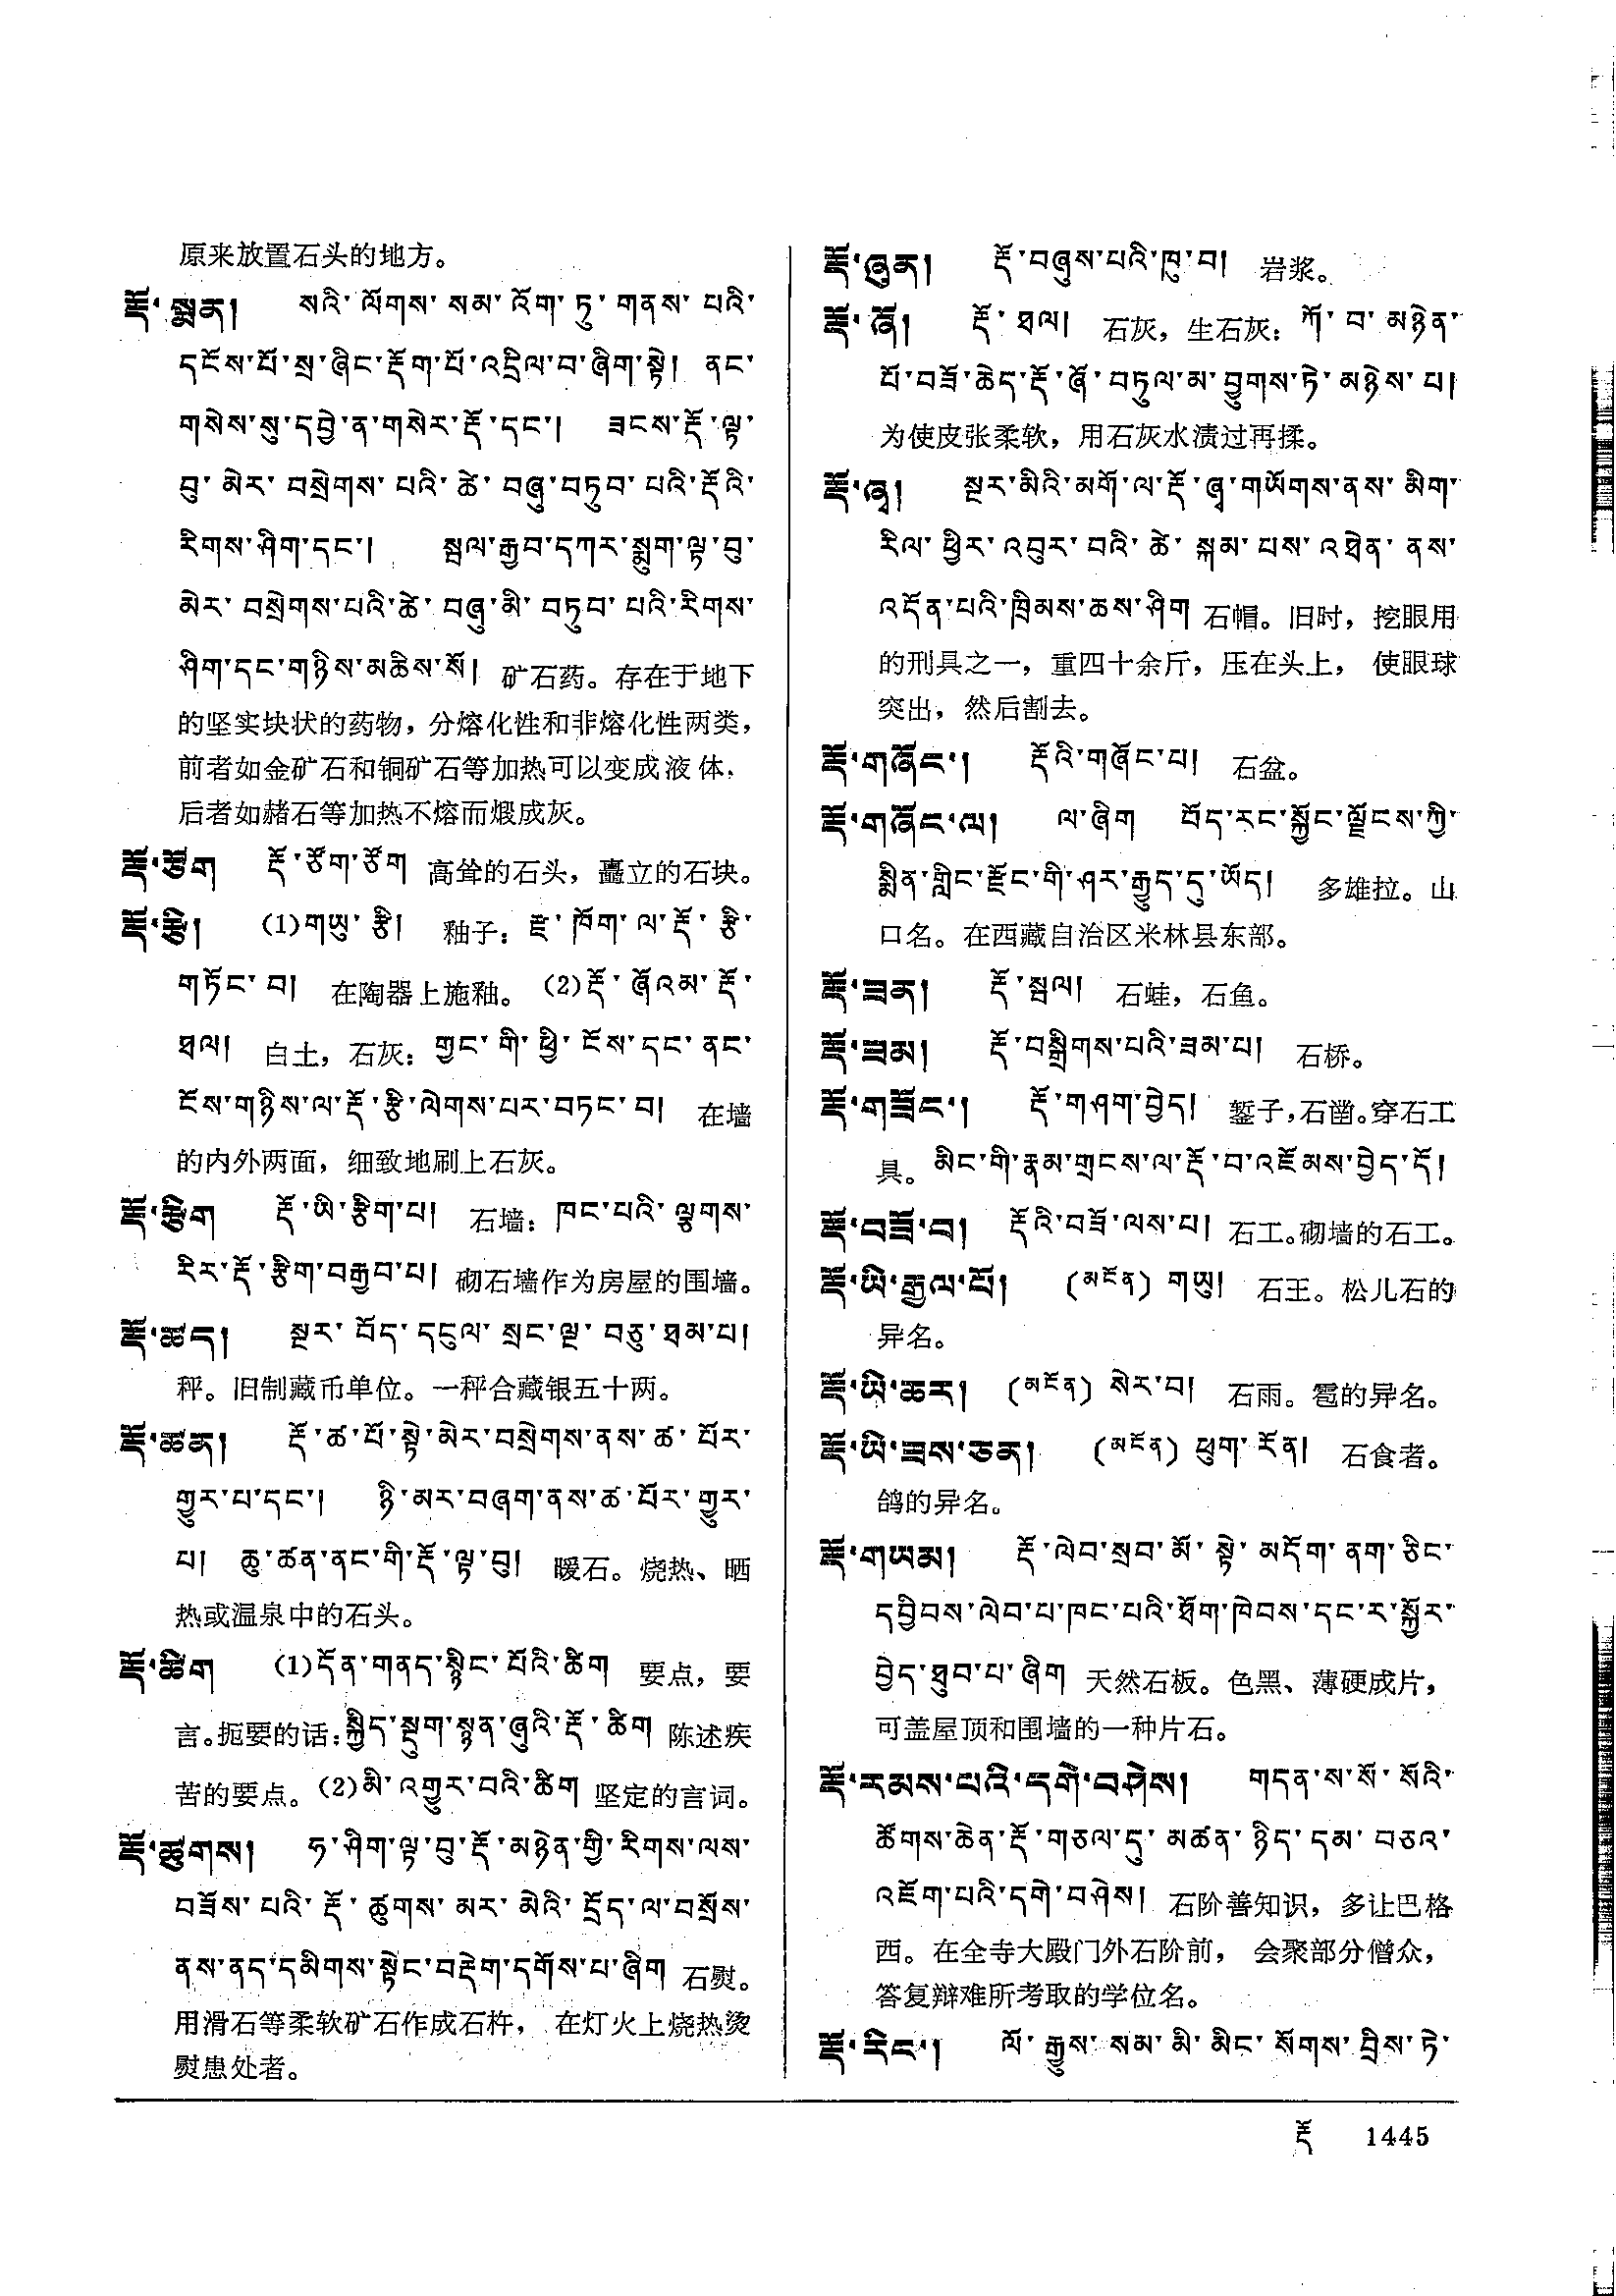 原来放置石头的地方。
རྡོ་སྨན། སའི་ལོགས་སམ་འོག་ཏུ་གནས་པའི་
དངོས་པོ་སྲ་ཞིང་རྡོག་པོ་འདྲིལ་བ་ཞིག་སྟེ། ནང་
གསེས་སུ་དབྱེ་ན་གསེར་རྡོ་དང་། ཟངས་རྡོ་ལྟ་
བུ་མེར་བསྲེགས་པའི་ཚེ་བཞུ་བཏུབ་པའི་རྡོའི་
རིགས་ཤིག་དང་། སྦལ་རྒྱབ་དཀར་སྨུག་ལྟ་བུ་
མེར་བསྲེགས་པའི་ཚེ་བཞུ་མི་བཏུབ་པའི་རིགས་
ཤིག་དང་གཉིས་མཆིས་སོ། 矿石药。存在于地下
的坚实块状的药物，分熔化性和非熔化性两类，
前者如金矿石和铜矿石等加热可以变成液体，
后者如赭石等加热不熔而煅成灰。
རྡོ་ཙོག རྡོ་ཙོག་ཙོག 高耸的石头，矗立的石块。
རྡོ་རྩི། (1)གཡུ་རྩི། 釉子：རྫ་ཁོག་ལ་རྡོ་རྩི་
གཏོང་བ། 在陶器上施釉。(2)རྡོ་ཞོའམ་རྡོ་
ཐལ། 白土，石灰：གྱང་གི་ཕྱི་ངོས་དང་ནང་
ངོས་གཉིས་ལ་རྡོ་རྩི་ལེགས་པར་བཏང་བ། 在墙
的内外两面，细致地刷上石灰。
རྡོ་རྩིག རྡོ་ཡི་རྩིག་པ། 石墙：ཁང་པའི་ལྕགས་
རིར་རྡོ་རྩིག་བརྒྱབ་པ། 砌石墙作为房屋的围墙。
རྡོ་ཚད། སྔར་བོད་དངུལ་སྲང་ལྔ་བཅུ་ཐམ་པ།
秤。旧制藏币单位。一秤合藏银五十两。
རྡོ་ཚན། རྡོ་ཚ་པོ་སྟེ་མེར་བསྲེགས་ནས་ཚ་པོར་
གྱུར་པ་དང་། ཉི་མར་བཞག་ནས་ཚ་པོར་གྱུར་
པ། ཆུ་ཚན་ནང་གི་རྡོ་ལྟ་བུ། 暖石。烧热、晒
热或温泉中的石头。
རྡོ་ཚིག (1)དོན་གནད་སྙིང་པོའི་ཚིག 要点，要
言。扼要的话：སྐྱིད་སྡུག་སྙན་ཞུའི་རྡོ་ཚིག 陈述疾
苦的要点。(2)མི་འགྱུར་བའི་ཚིག 坚定的言词。
རྡོ་ཚུགས། ཧ་ཤིག་ལྟ་བུ་རྡོ་མཉེན་གྱི་རིགས་ལས་
བཟོས་པའི་རྡོ་ཚུགས་མར་མེའི་དྲོད་ལ་བསྲོས་
ནས་ནད་དམིགས་སྟེང་བརྡེག་དགོས་པ་ཞིག 石熨。
用滑石等柔软矿石作成石杵，在灯火上烧热烫
熨患处者。
རྡོ་ཞུན། རྡོ་བཞུས་པའི་ཁུ་བ། 岩浆。
རྡོ་ཞོ། རྡོ་ཐལ། 石灰，生石灰：ཀོ་བ་མཉེན་
པོ་བཟོ་ཆེད་རྡོ་ཞོ་བཏུལ་མ་བྱུགས་ཏེ་མཉེས་པ།
为使皮张柔软，用石灰水渍过再揉。
རྡོ་ཞྭ། སྔར་མིའི་མགོ་ལ་རྡོ་ཞྭ་གཡོགས་ནས་མིག་
རིལ་ཕྱིར་འབུར་བའི་ཚེ་སྐམ་པས་འཐེན་ནས་
འདོན་པའི་ཁྲིམས་ཆས་ཤིག 石帽。旧时，挖眼用
的刑具之一，重四十余斤，压在头上，使眼球
突出，然后割去。
རྡོ་གཞོང་། རྡོའི་གཞོང་པ། 石盆。
རྡོ་གཞོང་ལ། ལ་ཞིག བོད་རང་སྐྱོང་ལྗོངས་ཀྱི་
སྨིན་གླིང་རྫོང་གི་ཤར་རྒྱུད་དུ་ཡོད། 多雄拉。山
口名。在西藏自治区米林县东部。
རྡོ་ཟན། རྡོ་སྦལ། 石蛙，石鱼。
རྡོ་ཟམ། རྡོ་བསྒྲིགས་པའི་ཟམ་པ། 石桥。
རྡོ་གཟོང་། རྡོ་གཤག་བྱེད། 錾子，石凿。穿石工
具。མིང་གི་རྣམ་གྲངས་ལ་རྡོ་བ་འཇོམས་བྱེད་དོ།
རྡོ་བཟོ་བ། རྡོའི་བཟོ་ལས་པ། 石工。砌墙的石工。
རྡོ་ཡི་རྒྱལ་པོ། (མངོན) གཡུ། 石王。松儿石的
异名。
རྡོ་ཡི་ཆར། (མངོན) སེར་བ། 石雨。雹的异名。
རྡོ་ཡི་ཟས་ཅན། (མངོན) ཕུག་རོན། 石食者。
鸽的异名。
རྡོ་གཡམ། རྡོ་ལེབ་སྲབ་མོ་སྟེ་མདོག་ནག་ཅིང་
དབྱིབས་ལེབ་པ་ཁང་པའི་ཐོག་ཁེབས་དང་ར་སྐོར་
བྱེད་ཐུབ་པ་ཞིག 天然石板。色黑、薄硬成片，
可盖屋顶和围墙的一种片石。
རྡོ་རམས་པའི་དགེ་བཤེས། གདན་ས་སོ་སོའི་
ཚོགས་ཆེན་རྡོ་གཅལ་དུ་མཚན་ཉིད་དམ་བཅའ་
འཇོག་པའི་དགེ་བཤེས། 石阶善知识，多让巴格
西。在全寺大殿门外石阶前，会聚部分僧众，
答复辩难所考取的学位名。
རྡོ་རིང་། ལོ་རྒྱུས་སམ་མི་མིང་སོགས་བྲིས་ཏེ་
རྡོ 1445